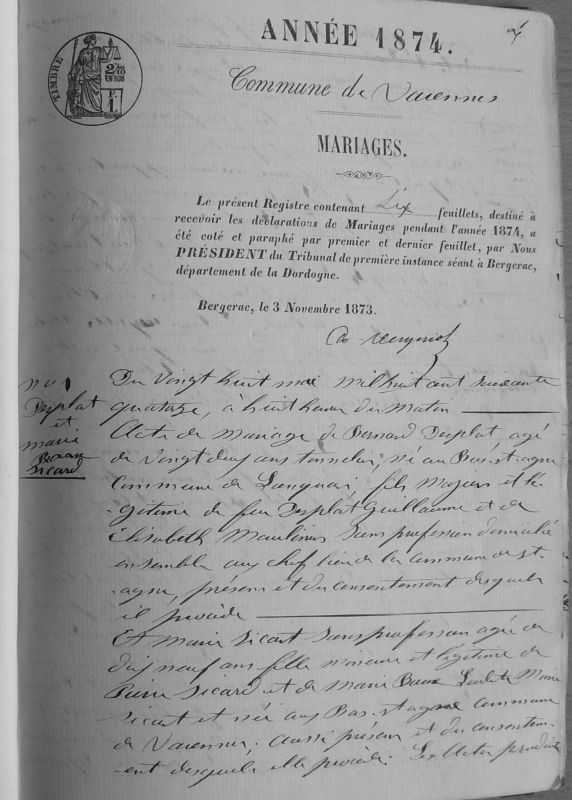 ANNÉE 1874.
TIMBRE
2/10
EN SUS
Commune de Varennes
MARIAGES.
Le présent Registre contenant Six feuillets, destiné à
recevoir les déclarations de Mariages pendant l'année 1874, a
été coté et paraphé par premier et dernier feuillet, par Nous
PRÉSIDENT du Tribunal de première instance séant à Bergerac,
département de la Dordogne.
Bergerac, le 3 Novembre 1873.
No 1
Desplat
et
marie
Sicard
Du Vingt huit mai mil huit cent soixante
quatorze, à huit heures du Matin
Acte de Mariage de Bernard Desplat agé
de Vingt deux ans tonnelier, né au Bas-st agne
Commune de Lanquais fils Majeur et lé
-gitime de feu Desplat Guillaume et de
Elisabeth Moulinier Sans profession domicilié
ensemble au chef lieu de la commune de st
-agne, présens et du consentement desquels
il procède
Et Marie Sicart Sans profession agée de
dix neuf ans fille mineure et légitime de
Pierre Sicard et de Marie Ladite Marie
Sicart est née au Bas-st agne commune
de Varennes, aussi présens et du consentem-
-ent desquels elle procède. Les Actes